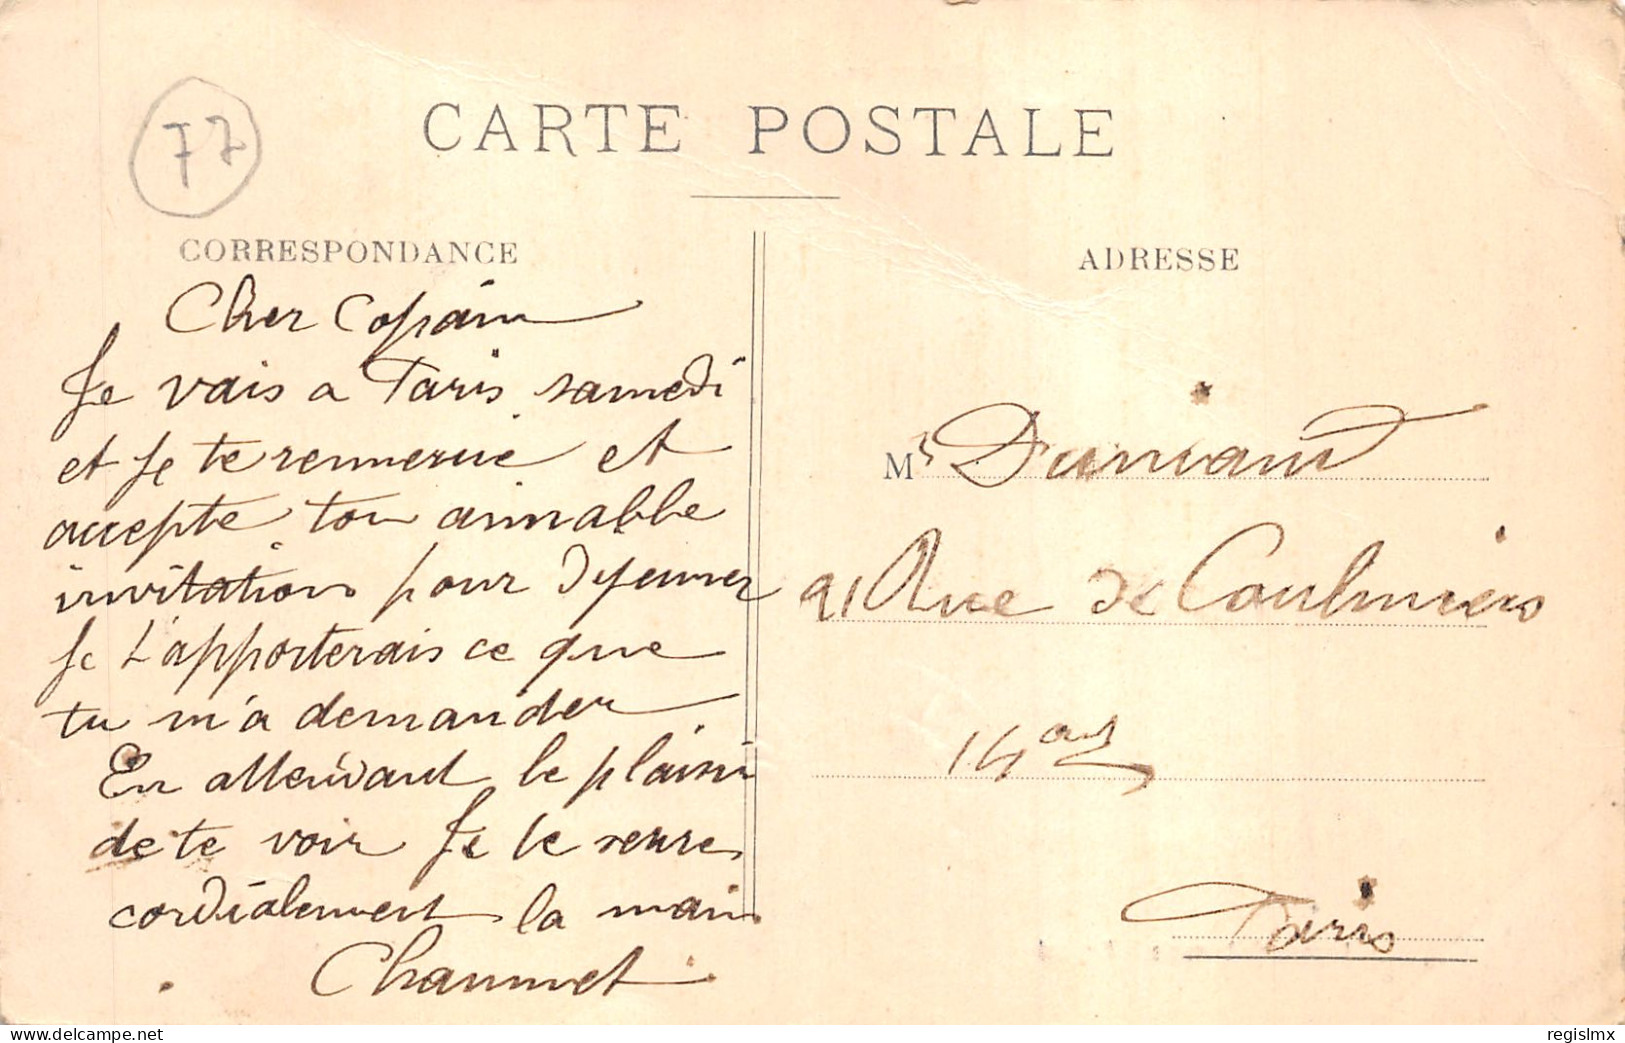 77
CARTE POSTALE
CORRESPONDANCE
Cher Copain
Je vais a Paris samedi
et je te remercie et
accepte ton aimabble
invitation pour dejeuner
je t'apporterais ce que
tu m'a demander
En attendant le plaisir
de te voir je te serre
cordialement la main
Chaumet
ADRESSE
Mr
Rue de Coulmiers
14
Paris
regislmx